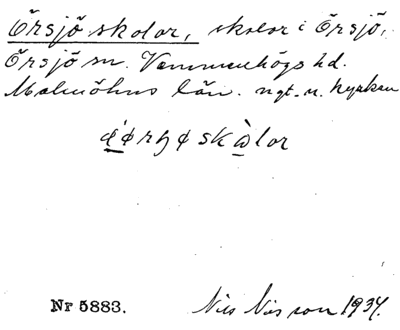 Örsjö skolor, skolor i Örsjö,
Örsjö sn. Vemmenhögs hd.
Malmöhus län. ngt. n. kyrkan
Nr 5883.
Nils Nilsson 1934.